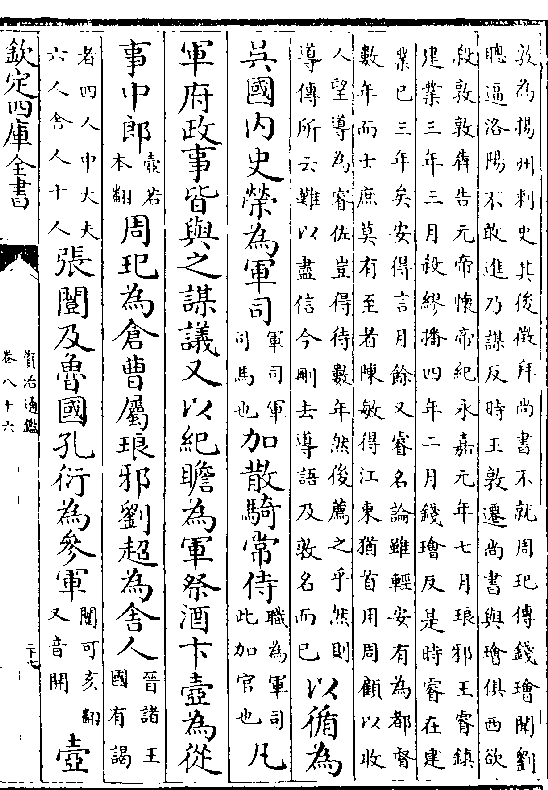 敦為揚州刺史其後徵拜尚書不就周玘傳錢璯聞劉
聰逼洛陽不敢進乃謀反時王敦遷尚書與璯俱西欲
殺敦敦犇告元帝懷帝紀永嘉元年七月琅邪王睿鎮
建業三年三月殺繆播四年二月錢璯反是時睿在建
業已三年矣安得言月餘又睿名論雖輕安有為都督
數年而士庶莫有至者陳敏得江東猶首用周顧以收
人望導為睿佐豈得待數年然後薦之乎然則
導傳所云難以盡信今刪去導語及敦名而已
以循為
吳國内史榮為軍司軍司軍司馬也加散騎常侍職為軍司此加官也凡
軍府政事皆與之謀議又以紀瞻為軍祭酒卞壼為從
事中郎壼若本翻周玘為倉曹屬琅邪劉超為舍人晉諸王國有謁
者四人中大夫六人舍人十人張闓及魯國孔衍為參軍闓可亥翻又音開壼
欽定四庫全書
資治通鑑
卷八十六